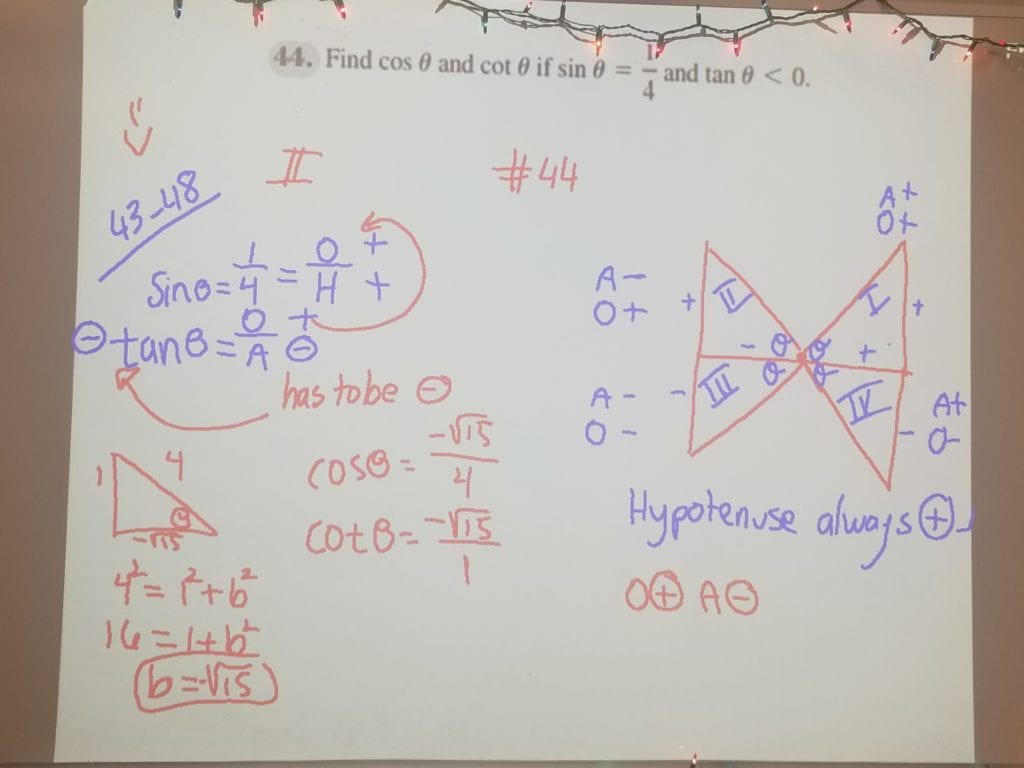 44. Find cos θ and cot θ if sin θ = 1/4 and tan θ < 0.
II
#44
43-48
Sinθ = 1/4 = O/H + +
⊖ tanθ = O/A + ⊖
has to be ⊖
1 4 θ -√15
4² = 1² + b²
16 = 1 + b²
b = -√15
cosθ = -√15/4
cotθ = -√15/1
A+
O+
A-
O+
+ II I +
- θ θ +
θ θ
- III IV -
A-
O-
A+
O-
Hypotenuse always ⊕
O⊕ A⊖